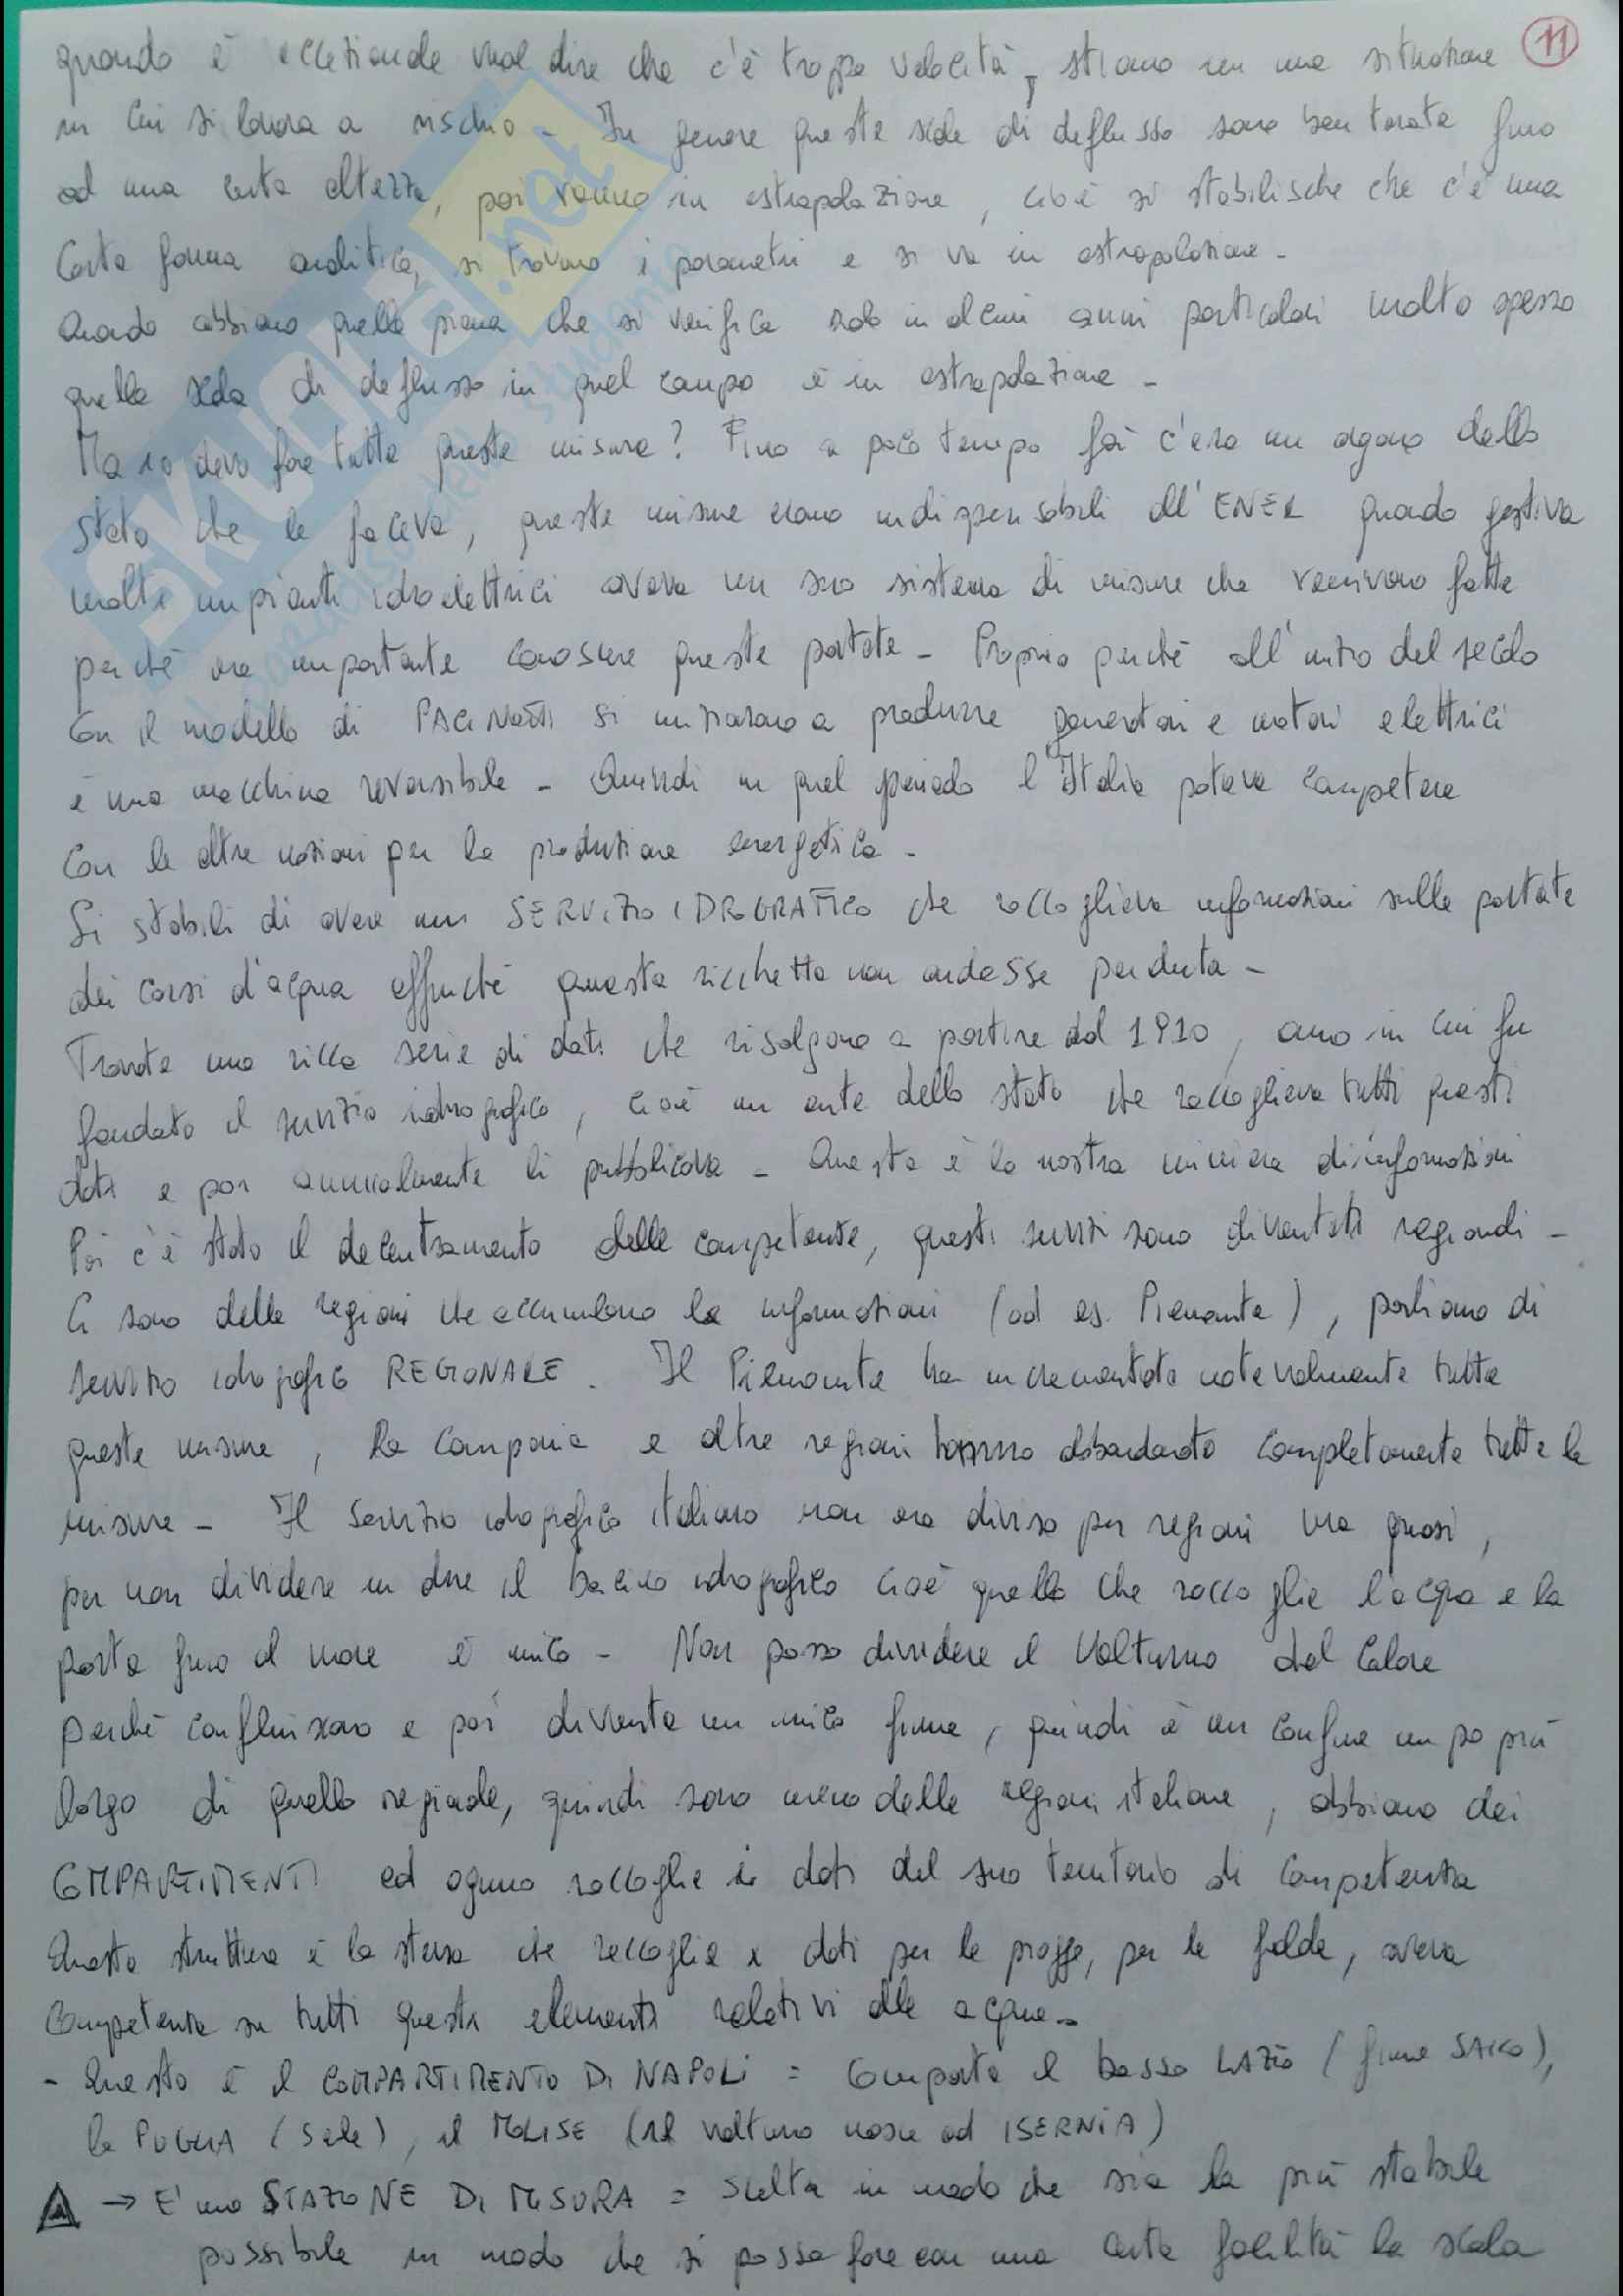 quando è eccezionale vuol dire che c'è troppa velocità, stiamo in una situazione 11
in cui si lavora a rischio - In genere queste scale di deflusso sono ben tarate fino
ad una certa altezza, poi vanno in estrapolazione, cioè si stabilische che c'è una
certa forma analitica, si trovano i parametri e si va in estrapolazione -
Quando abbiamo quella piena che si verifica solo in alcuni anni particolari molto spesso
quella scala di deflusso in quel campo è in estrapolazione -
Ma io devo fare tutte queste misure? Fino a poco tempo fa c'era un organo dello
stato che le faceva, queste misure erano indispensabili all'ENEL quando gestiva
molti impianti idroelettrici aveva un suo sistema di misure che venivano fatte
perché era importante conoscere queste portate - Proprio perché all'inizio del secolo
con il modello di PACINOTTI si iniziarono a produrre generatori e motori elettrici
è una macchina reversibile - Quindi in quel periodo l'Italia poteva competere
con le altre nazioni per la produzione energetica -
Si stabilì di avere un SERVIZIO IDROGRAFICO che raccoglieva informazioni sulle portate
dei corsi d'acqua affinché questa ricchezza non andasse perduta -
Trovate una ricca serie di dati che risalgono a partire dal 1910, anno in cui fu
fondato il servizio idrografico, cioè un ente dello stato che raccoglieva tutti questi
dati e poi annualmente li pubblicava - Questa è la nostra miniera di informazioni
Poi c'è stato il decentramento delle competenze, questi servizi sono diventati regionali -
Ci sono delle regioni che accumulano le informazioni (ad es. Piemonte), parliamo di
servizio idrografico REGIONALE. Il Piemonte ha incrementato notevolmente tutte
queste misure, la Campania e altre regioni hanno abbandonato completamente tutte le
misure - Il servizio idrografico italiano non era diviso per regioni ma quasi,
per non dividere in due il bacino idrografico cioè quello che raccoglie l'acqua e la
porta fino al mare è unico - Non posso dividere il Volturno dal Calore
perché confluiscono e poi diventa un unico fiume, quindi è un confine un po più
largo di quello regionale, quindi sono meno delle regioni italiane, abbiamo dei
COMPARTIMENTI ed ognuno raccoglie i dati del suo territorio di competenza
Questa struttura è la stessa che raccoglie i dati per le piogge, per le falde, aveva
competenze su tutti questi elementi relativi alle acque -
- Questo è il COMPARTIMENTO DI NAPOLI = comporta il basso LAZIO (fiume SACCO),
la PUGLIA (Sele), il MOLISE (il volturno nasce ad ISERNIA)
→ E' una STAZIONE DI MISURA = scelta in modo che sia la più stabile
possibile in modo che si possa fare con una certa facilità la scala
SKUOLA.net